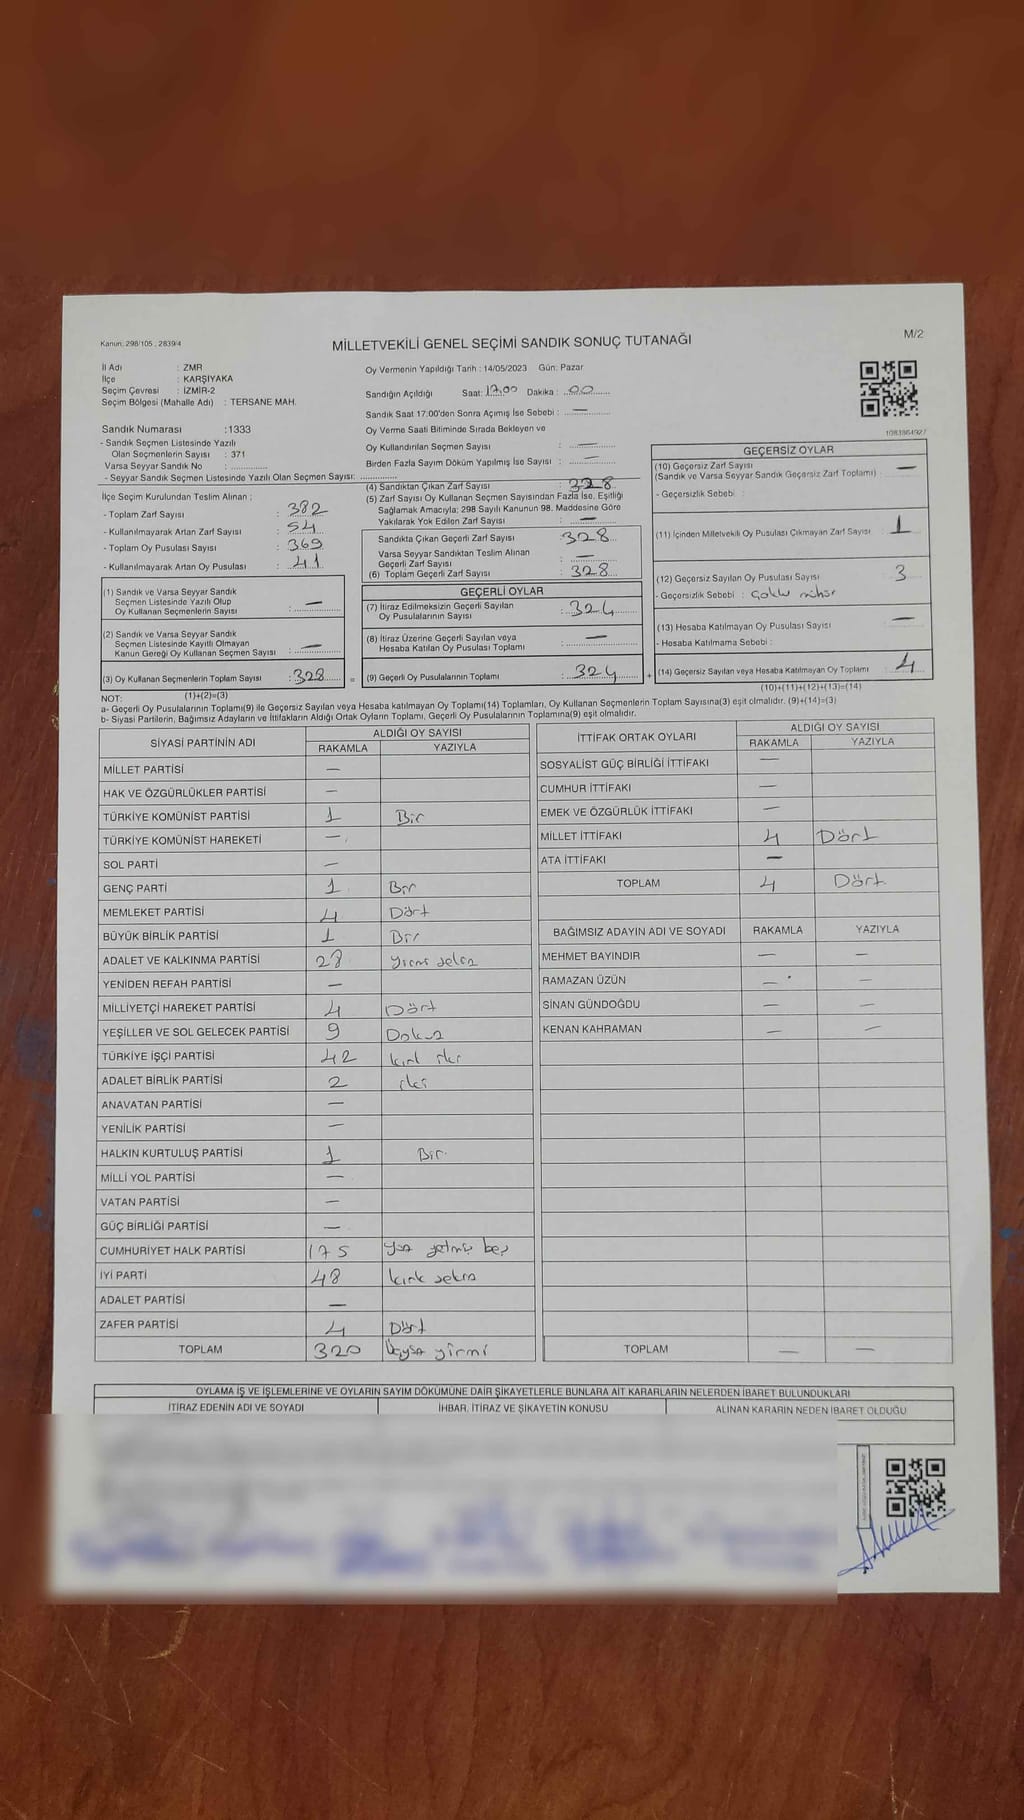 Kanun: 298/105, 2839/4
MİLLETVEKİLİ GENEL SEÇİMİ SANDIK SONUÇ TUTANAĞI
M/2
İl Adı : ZMR
İlçe : KARŞIYAKA
Seçim Çevresi : İZMİR-2
Seçim Bölgesi (Mahalle Adı) : TERSANE MAH.
Sandık Numarası :1333
- Sandık Seçmen Listesinde Yazılı
Olan Seçmenlerin Sayısı : 371
Varsa Seyyar Sandık No : ............
- Seyyar Sandık Seçmen Listesinde Yazılı Olan Seçmen Sayısı: ............
İlçe Seçim Kurulundan Teslim Alınan ;
- Toplam Zarf Sayısı : 382
- Kullanılmayarak Artan Zarf Sayısı : 54
- Toplam Oy Pusulası Sayısı : 369
- Kullanılmayarak Artan Oy Pusulası : 41
(1) Sandık ve Varsa Seyyar Sandık
Seçmen Listesinde Yazılı Olup
Oy Kullanan Seçmenlerin Sayısı : —
(2) Sandık ve Varsa Seyyar Sandık
Seçmen Listesinde Kayıtlı Olmayan
Kanun Gereği Oy Kullanan Seçmen Sayısı : —
(3) Oy Kullanan Seçmenlerin Toplam Sayısı : 328
Oy Vermenin Yapıldığı Tarih : 14/05/2023 Gün: Pazar
Sandığın Açıldığı Saat: 17.00 Dakika : 00
Sandık Saat 17:00'den Sonra Açımış İse Sebebi : —
Oy Verme Saati Bitiminde Sırada Bekleyen ve
Oy Kullandırılan Seçmen Sayısı : —
Birden Fazla Sayım Döküm Yapılmış İse Sayısı : —
(4) Sandıktan Çıkan Zarf Sayısı : 328
(5) Zarf Sayısı Oy Kullanan Seçmen Sayısından Fazla İse, Eşitliği
Sağlamak Amacıyla; 298 Sayılı Kanunun 98. Maddesine Göre
Yakılarak Yok Edilen Zarf Sayısı : —
Sandıkta Çıkan Geçerli Zarf Sayısı : 328
Varsa Seyyar Sandıktan Teslim Alınan
Geçerli Zarf Sayısı : —
(6) Toplam Geçerli Zarf Sayısı : 328
GEÇERLİ OYLAR
(7) İtiraz Edilmeksizin Geçerli Sayılan
Oy Pusulalarının Sayısı : 324
(8) İtiraz Üzerine Geçerli Sayılan veya
Hesaba Katılan Oy Pusulası Toplamı : —
= (9) Geçerli Oy Pusulalarının Toplamı : 324 +
1083864927
GEÇERSİZ OYLAR
(10) Geçersiz Zarf Sayısı
(Sandık ve Varsa Seyyar Sandık Geçersiz Zarf Toplamı) : —
- Geçersizlik Sebebi :
(11) İçinden Milletvekili Oy Pusulası Çıkmayan Zarf Sayısı : 1
(12) Geçersiz Sayılan Oy Pusulası Sayısı : 3
- Geçersizlik Sebebi : Çoklu mühür
(13) Hesaba Katılmayan Oy Pusulası Sayısı : —
- Hesaba Katılmama Sebebi :
(14) Geçersiz Sayılan veya Hesaba Katılmayan Oy Toplamı : 4
NOT: (1)+(2)=(3)
(10)+(11)+(12)+(13)=(14)
a- Geçerli Oy Pusulalarının Toplamı(9) ile Geçersiz Sayılan veya Hesaba Katılmayan Oy Toplamı(14) Toplamları, Oy Kullanan Seçmenlerin Toplam Sayısına(3) eşit olmalıdır. (9)+(14)=(3)
b- Siyasi Partilerin, Bağımsız Adayların ve İttifakların Aldığı Ortak Oyların Toplamı, Geçerli Oy Pusulalarının Toplamına(9) eşit olmalıdır.
SİYASİ PARTİNİN ADI
ALDIĞI OY SAYISI
RAKAMLA YAZIYLA
MİLLET PARTİSİ —
HAK VE ÖZGÜRLÜKLER PARTİSİ —
TÜRKİYE KOMÜNİST PARTİSİ 1 Bir
TÜRKİYE KOMÜNİST HAREKETİ —
SOL PARTİ —
GENÇ PARTİ 1 Bir
MEMLEKET PARTİSİ 4 Dört
BÜYÜK BİRLİK PARTİSİ 1 Bir
ADALET VE KALKINMA PARTİSİ 28 yirmi sekiz
YENİDEN REFAH PARTİSİ —
MİLLİYETÇİ HAREKET PARTİSİ 4 Dört
YEŞİLLER VE SOL GELECEK PARTİSİ 9 Dokuz
TÜRKİYE İŞÇİ PARTİSİ 42 kırk iki
ADALET BİRLİK PARTİSİ 2 iki
ANAVATAN PARTİSİ —
YENİLİK PARTİSİ —
HALKIN KURTULUŞ PARTİSİ 1 Bir
MİLLİ YOL PARTİSİ —
VATAN PARTİSİ —
GÜÇ BİRLİĞİ PARTİSİ —
CUMHURİYET HALK PARTİSİ 175 yüz yetmiş beş
İYİ PARTİ 48 kırk sekiz
ADALET PARTİSİ —
ZAFER PARTİSİ 4 Dört
TOPLAM 320 Üçyüz yirmi
İTTİFAK ORTAK OYLARI
ALDIĞI OY SAYISI
RAKAMLA YAZIYLA
SOSYALİST GÜÇ BİRLİĞİ İTTİFAKI —
CUMHUR İTTİFAKI —
EMEK VE ÖZGÜRLÜK İTTİFAKI —
MİLLET İTTİFAKI 4 Dört
ATA İTTİFAKI —
TOPLAM 4 Dört
BAĞIMSIZ ADAYIN ADI VE SOYADI RAKAMLA YAZIYLA
MEHMET BAYINDIR — —
RAMAZAN ÜZÜN — —
SİNAN GÜNDOĞDU — —
KENAN KAHRAMAN — —
TOPLAM — —
OYLAMA İŞ VE İŞLEMLERİNE VE OYLARIN SAYIM DÖKÜMÜNE DAİR ŞİKAYETLERLE BUNLARA AİT KARARLARIN NELERDEN İBARET BULUNDUKLARI
İTİRAZ EDENİN ADI VE SOYADI İHBAR, İTİRAZ VE ŞİKAYETİN KONUSU ALINAN KARARIN NEDEN İBARET OLDUĞU